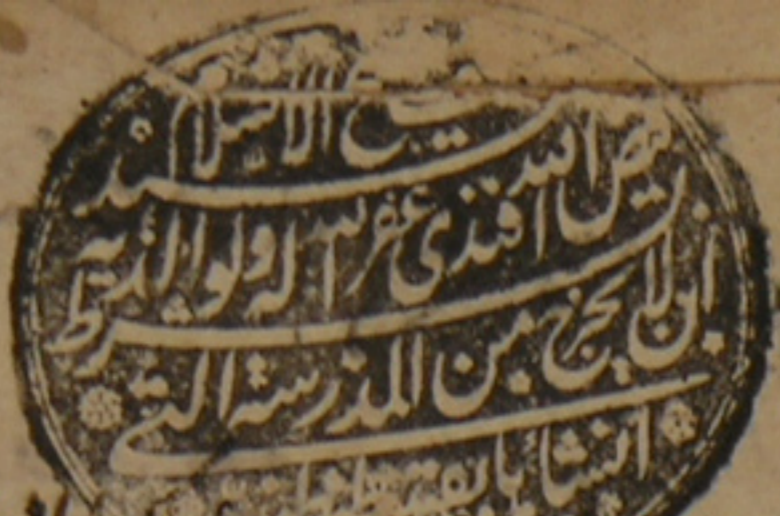 شيخ الاسلام السيد
فيض الله افندى غفر الله له ولوالديه
بشرط ان لا يخرج من المدرسة التي
انشأها بقسطنطينية